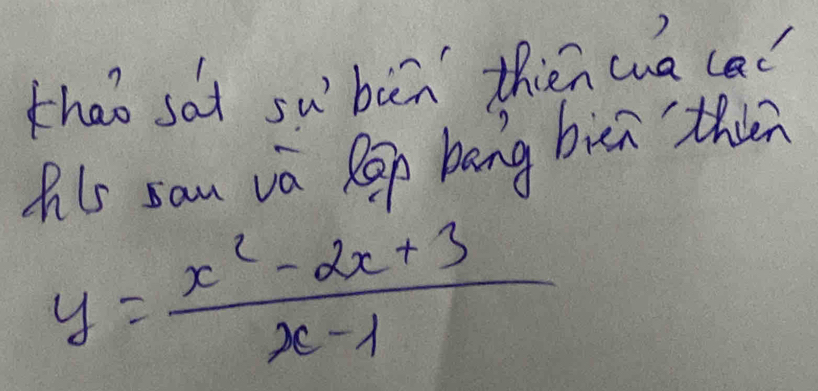 khảo sát sự biến thiên của các
hls sau và lập bảng biến thiên
y = \frac{x^2 - 2x + 3}{x - 1}